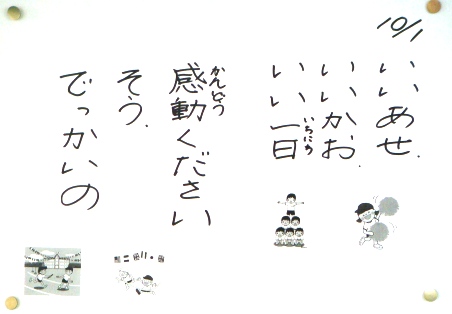 10/1
いいあせ.
いいかお.
いい一日
いちにち
感動ください
かんどう
そう.
でっかいの